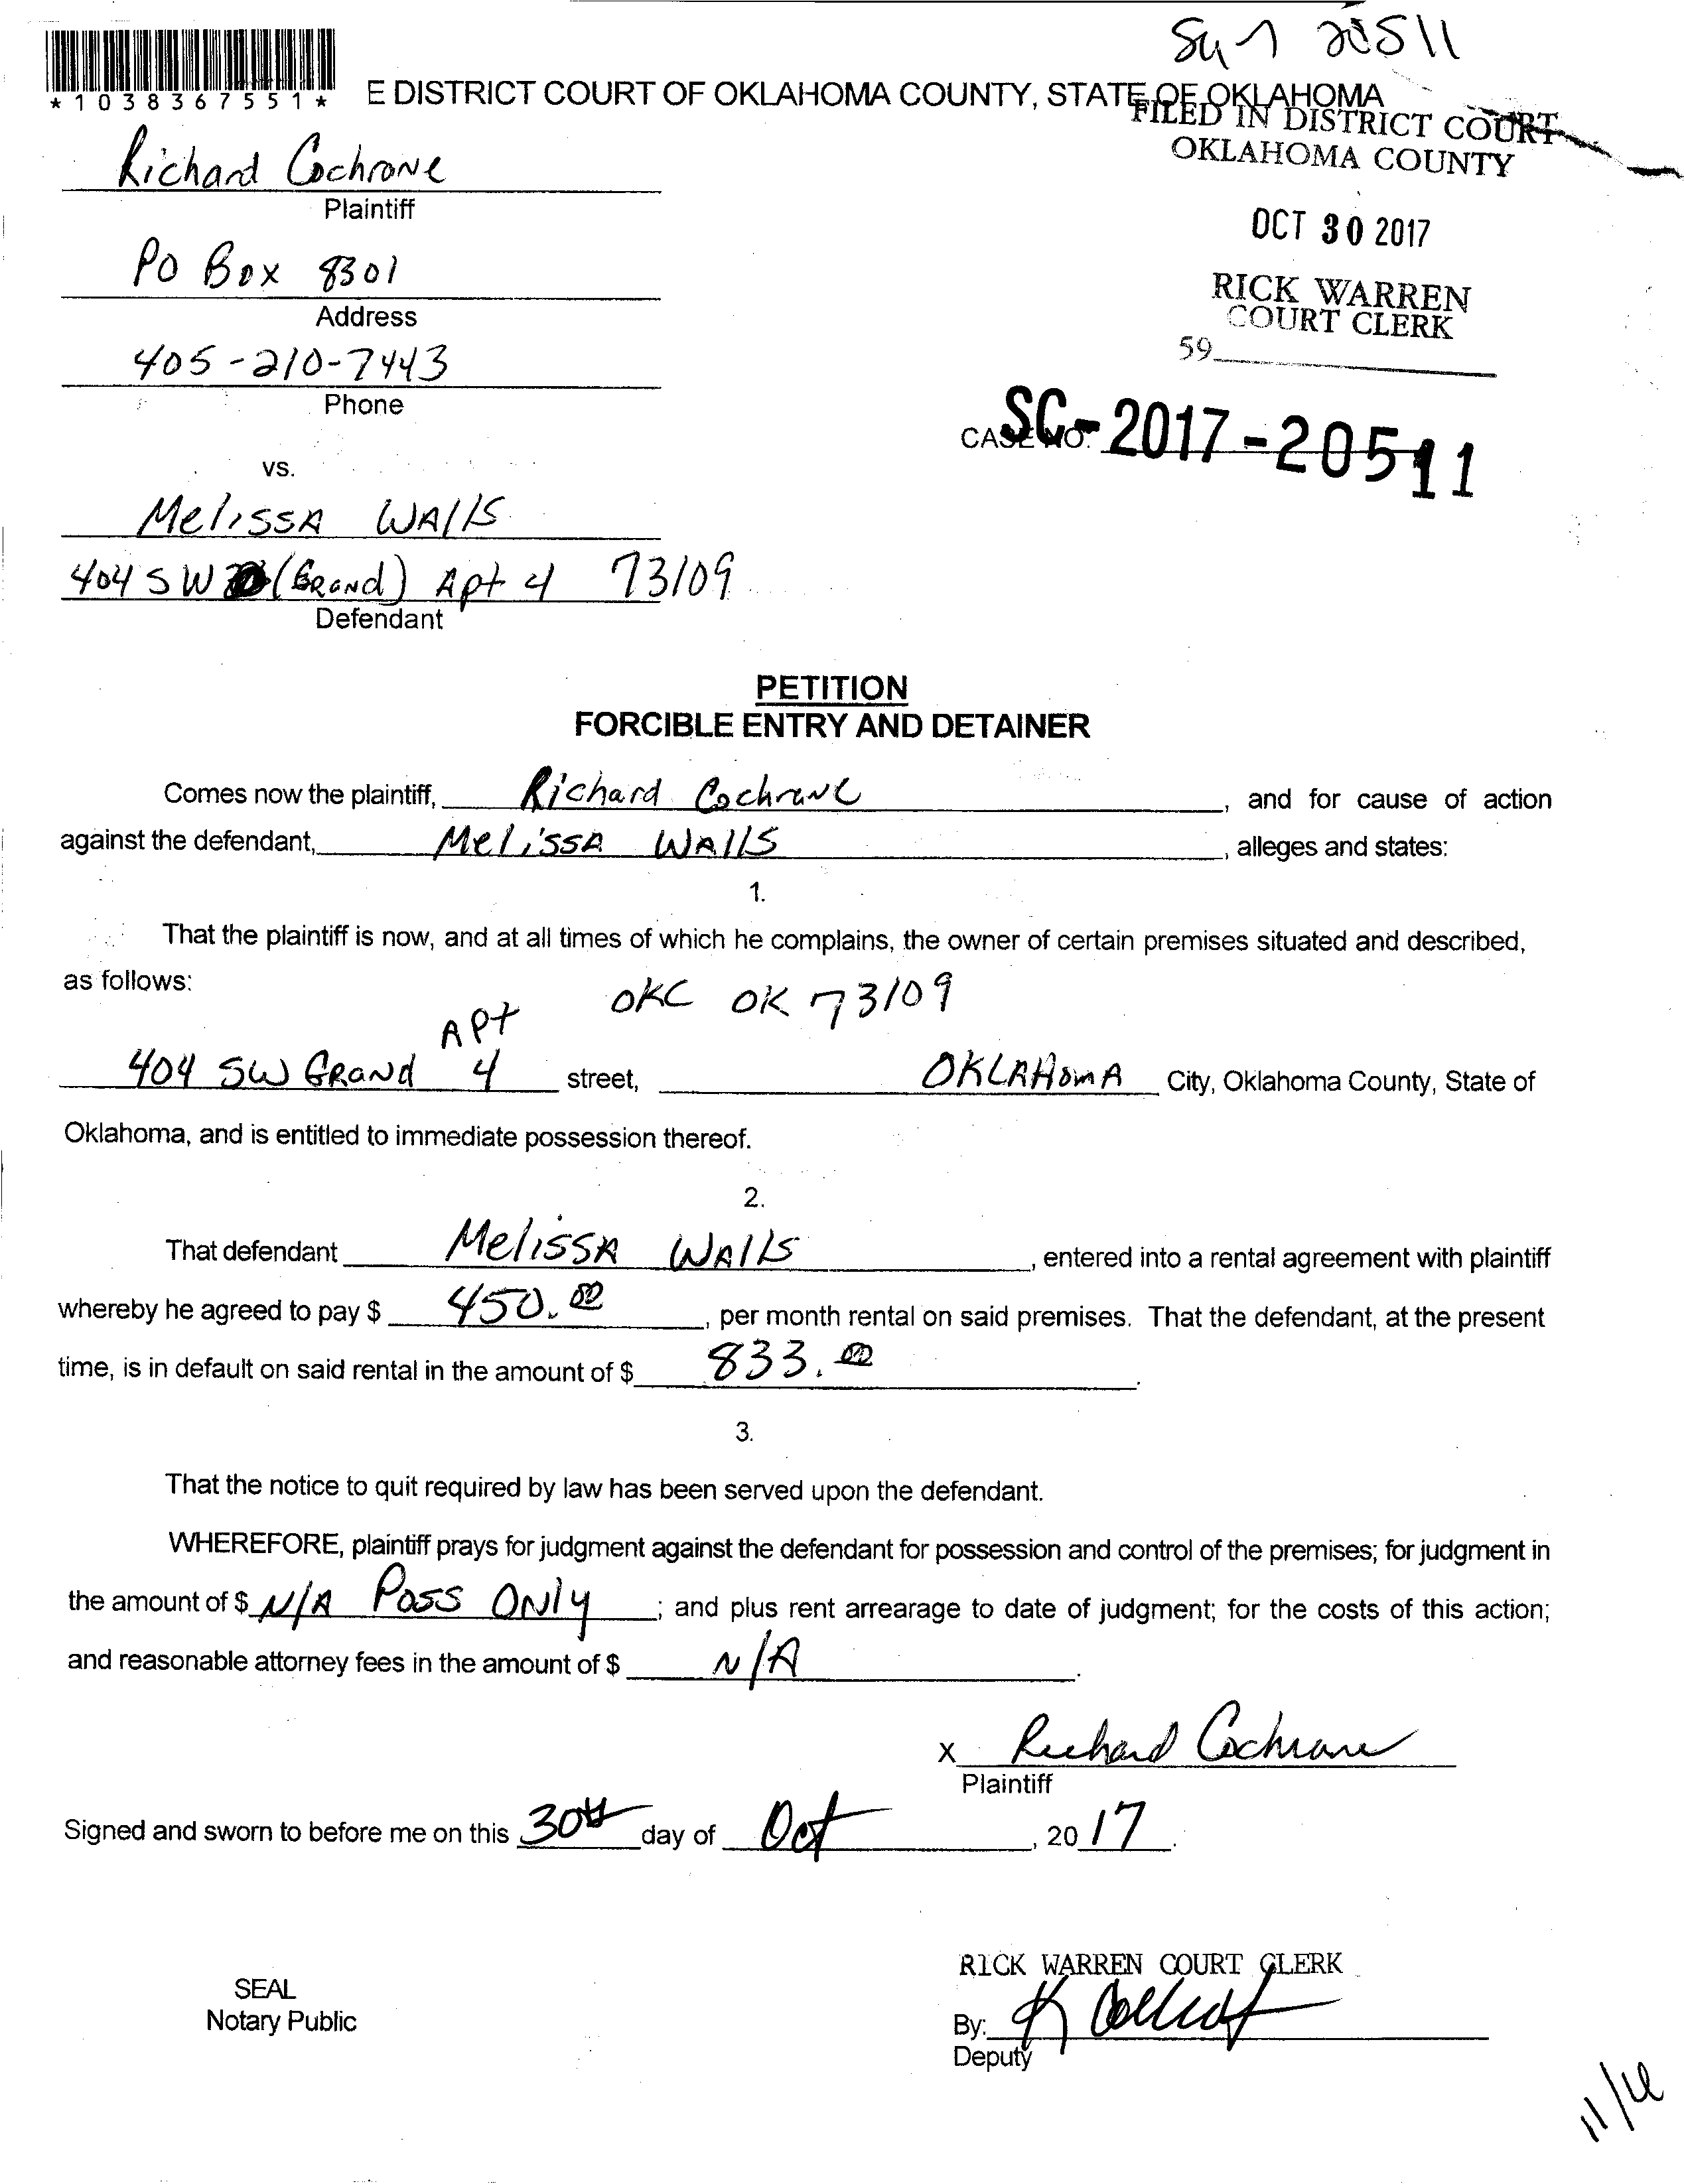 20511
*1038367551*
E DISTRICT COURT OF OKLAHOMA COUNTY, STATE OF OKLAHOMA
FILED IN DISTRICT COURT
OKLAHOMA COUNTY
Richard Cochrane
Plaintiff
OCT 30 2017
PO Box 8301
Address
RICK WARREN
COURT CLERK
59
405-210-7443
Phone
CASE NO. SC-2017-20511
vs.
Melissa Walls
404 SW (Grand) Apt 4 73109
Defendant
PETITION
FORCIBLE ENTRY AND DETAINER
Comes now the plaintiff, Richard Cochrane, and for cause of action
against the defendant, Melissa Walls, alleges and states:
1.
That the plaintiff is now, and at all times of which he complains, the owner of certain premises situated and described,
as follows:
OKC OK 73109
Apt
404 SW Grand 4 street, OKLAHOMA City, Oklahoma County, State of
Oklahoma, and is entitled to immediate possession thereof.
2.
That defendant Melissa Walls, entered into a rental agreement with plaintiff
whereby he agreed to pay $ 450.00, per month rental on said premises. That the defendant, at the present
time, is in default on said rental in the amount of $ 833.00.
3.
That the notice to quit required by law has been served upon the defendant.
WHEREFORE, plaintiff prays for judgment against the defendant for possession and control of the premises; for judgment in
the amount of $ N/A Poss Only; and plus rent arrearage to date of judgment; for the costs of this action;
and reasonable attorney fees in the amount of $ N/A.
x Richard Cochrane
Plaintiff
Signed and sworn to before me on this 30th day of Oct, 2017.
RICK WARREN COURT CLERK
SEAL
Notary Public
By:
Deputy